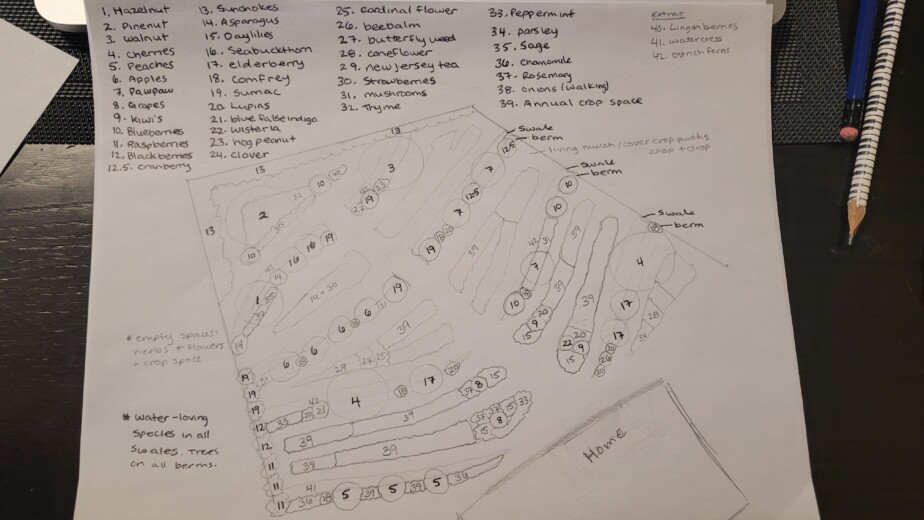 1. Hazelnut
2. Pinenut
3. Walnut
4. Cherries
5. Peaches
6. Apples
7. Pawpaw
8. Grapes
9. Kiwi's
10. Blueberries
11. Raspberries
12. Blackberries
12.5. Cranberry
13. Sunchokes
14. Asparagus
15. Daylilies
16. Seabuckthorn
17. elderberry
18. Comfrey
19. Sumac
20. Lupins
21. blue false indigo
22. wisteria
23. hog peanut
24. Clover
25. Cardinal flower
26. beebalm
27. butterfly weed
28. coneflower
29. new jersey tea
30. Strawberries
31. mushrooms
32. Thyme
33. Peppermint
34. parsley
35. Sage
36. Chamomile
37. Rosemary
38. Onions (walking)
39. Annual crop space
EXTRAS
40. Lingonberries
41. watercress
42. Ostrich ferns
Swale
berm
living mulch/cover crop paths
chop + drop
Swale
berm
Swale
berm
13
13
13
2
10
32
10
3
42
19
23
27
12.5
7
12.5
7
19
39
10
10
42
31
7
10
18
20
9
15
39
39
39
22
20
9
15
4
17
17
28
16
16
19
42
14
1
14
14 + 30
19
6
6
6
6
18
31
39
29
27
25
19
19
19
12
12
11
11
11
42
4
18
17
20
33
21
39
37
8
15
39
39
37
37
15
33
15
8
39
41
36
18
5
39
5
39
5
36
* empty spaces:
herbs + flowers
+ crop space
* Water-loving
species in all
Swales. Trees
on all berms.
Home